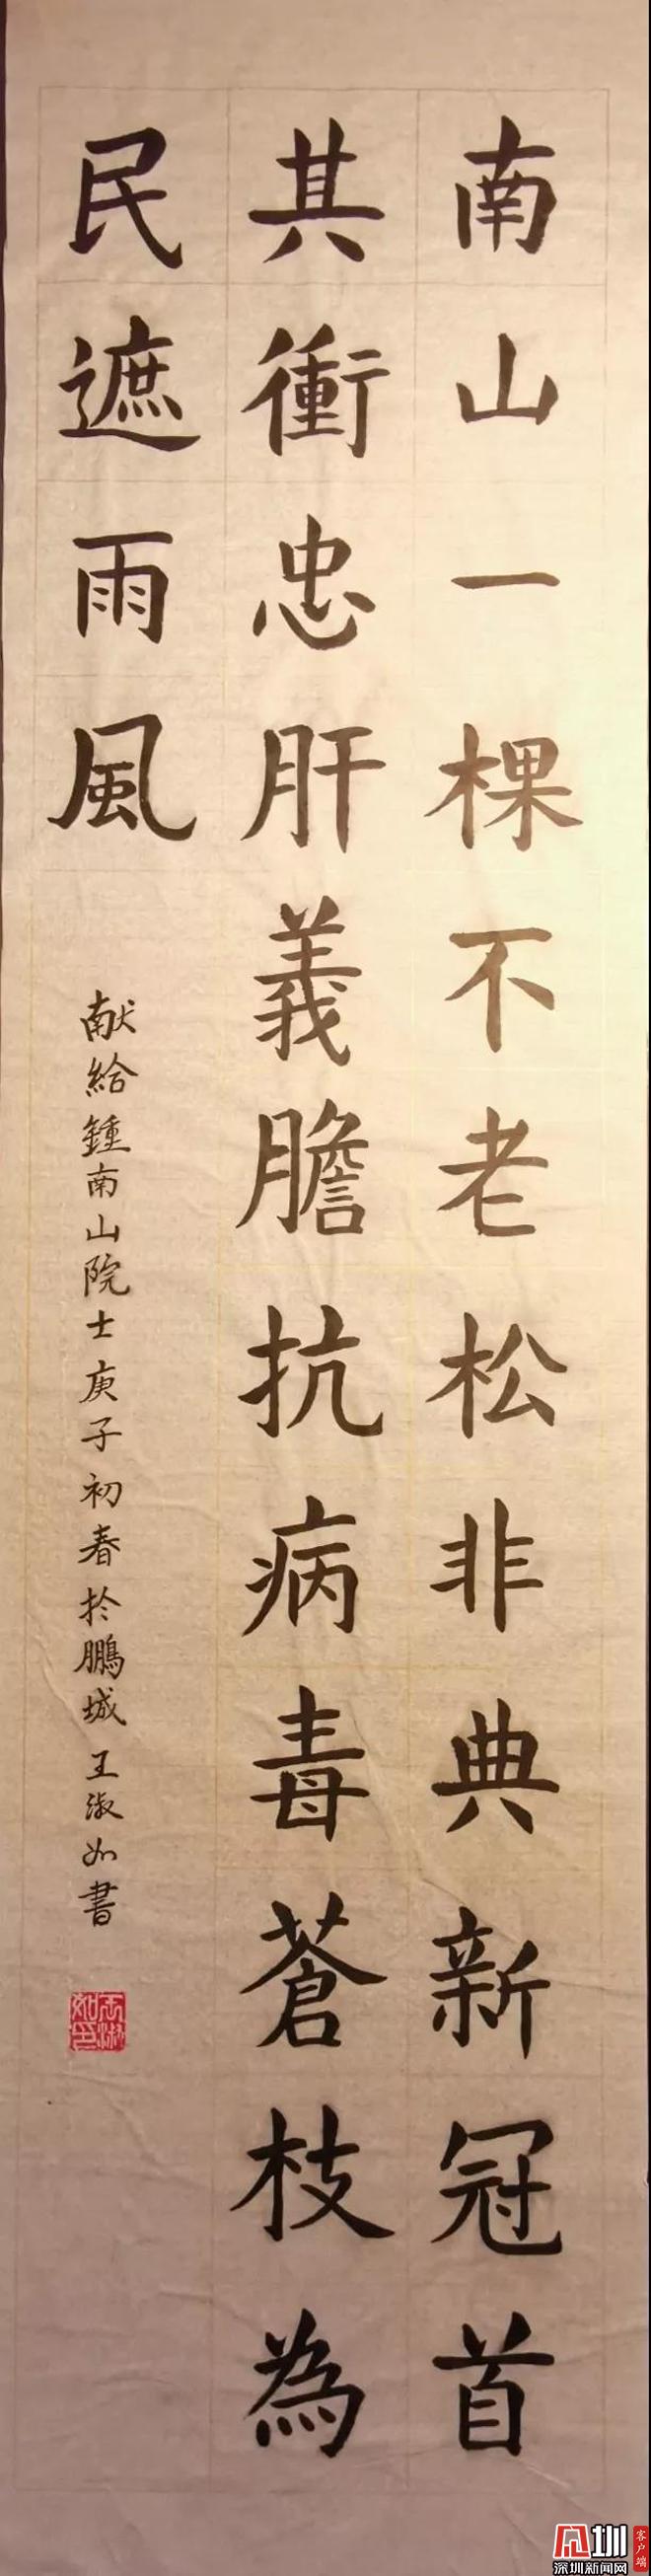 南山一棵不老松非典新冠首
其衝忠肝義膽抗病毒蒼枝為
民遮雨風
献給鍾南山院士庚子初春於鵬城王淑如書
王淑如印
圳
深圳新闻网
客户端